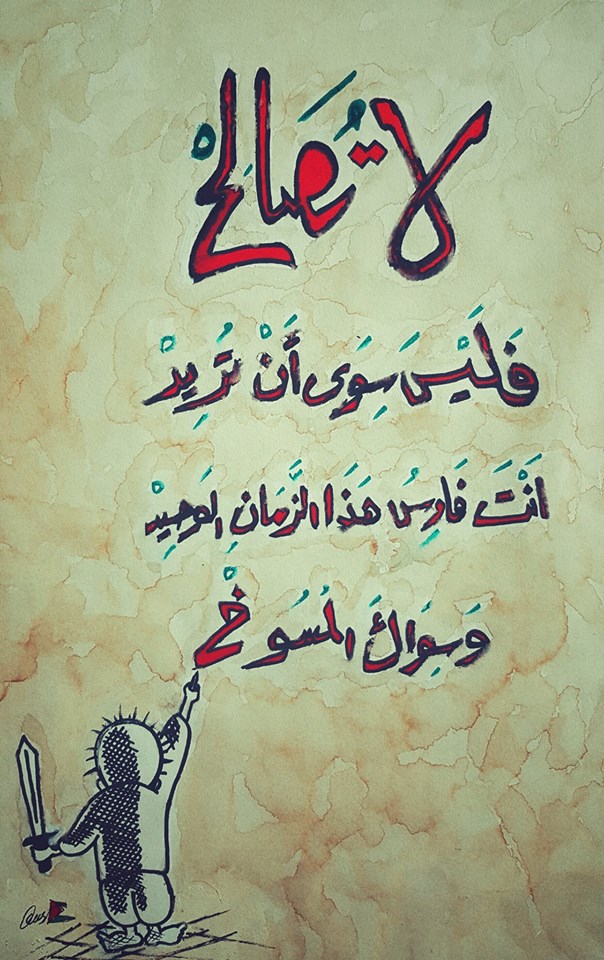 لا تُصَالِحْ
فَلَيْسَ سِوَى أَنْ تُرِيدْ
أَنْتَ فَارِسُ هَذَا الزَّمَانِ الوَحِيدْ
وَسِوَاكَ المُسُوخْ